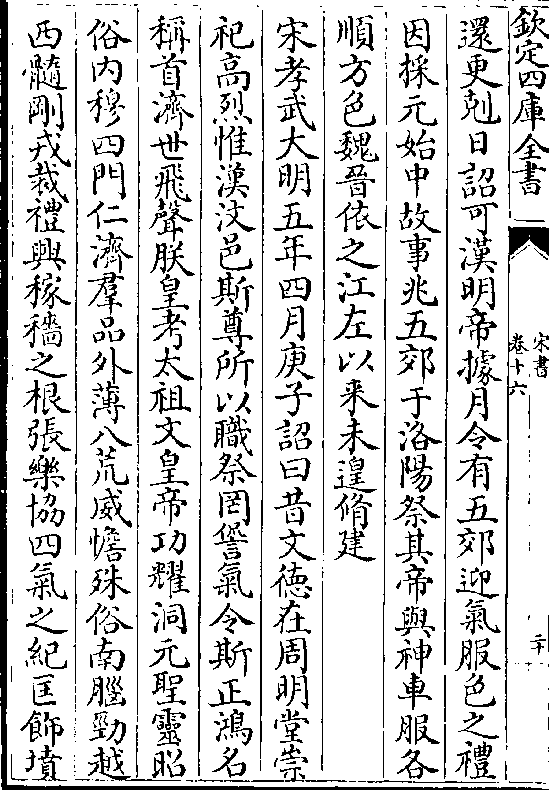 欽定四庫全書
宋書
卷十六
二十
還更剋日詔可漢明帝據月令有五郊迎氣服色之禮
因採元始中故事兆五郊于洛陽祭其帝與神車服各
順方色魏晉依之江左以来未遑脩建
宋孝武大明五年四月庚子詔曰昔文德在周明堂崇
祀高烈惟漢汶邑斯尊所以職祭罔諐氣令斯正鴻名
稱首濟世飛聲朕皇考太祖文皇帝功耀洞元聖靈昭
俗内穆四門仁濟羣品外薄八荒威憺殊俗南腦勁越
西髓剛戎裁禮興稼穡之根張樂協四氣之紀匡飾墳